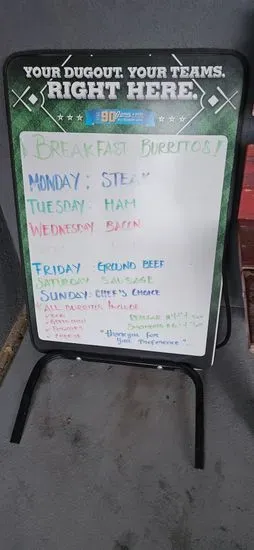 YOUR DUGOUT. YOUR TEAMS.
RIGHT HERE.
90
BREAKFAST BURRITOS!
MONDAY: STEAK
TUESDAY: HAM
WEDNESDAY BACON
FRIDAY: GROUND BEEF
SATURDAY SAUSAGE
SUNDAY: CHEF'S CHOICE
ALL BURRITOS INCLUDE
"Thank you for
your Preference"